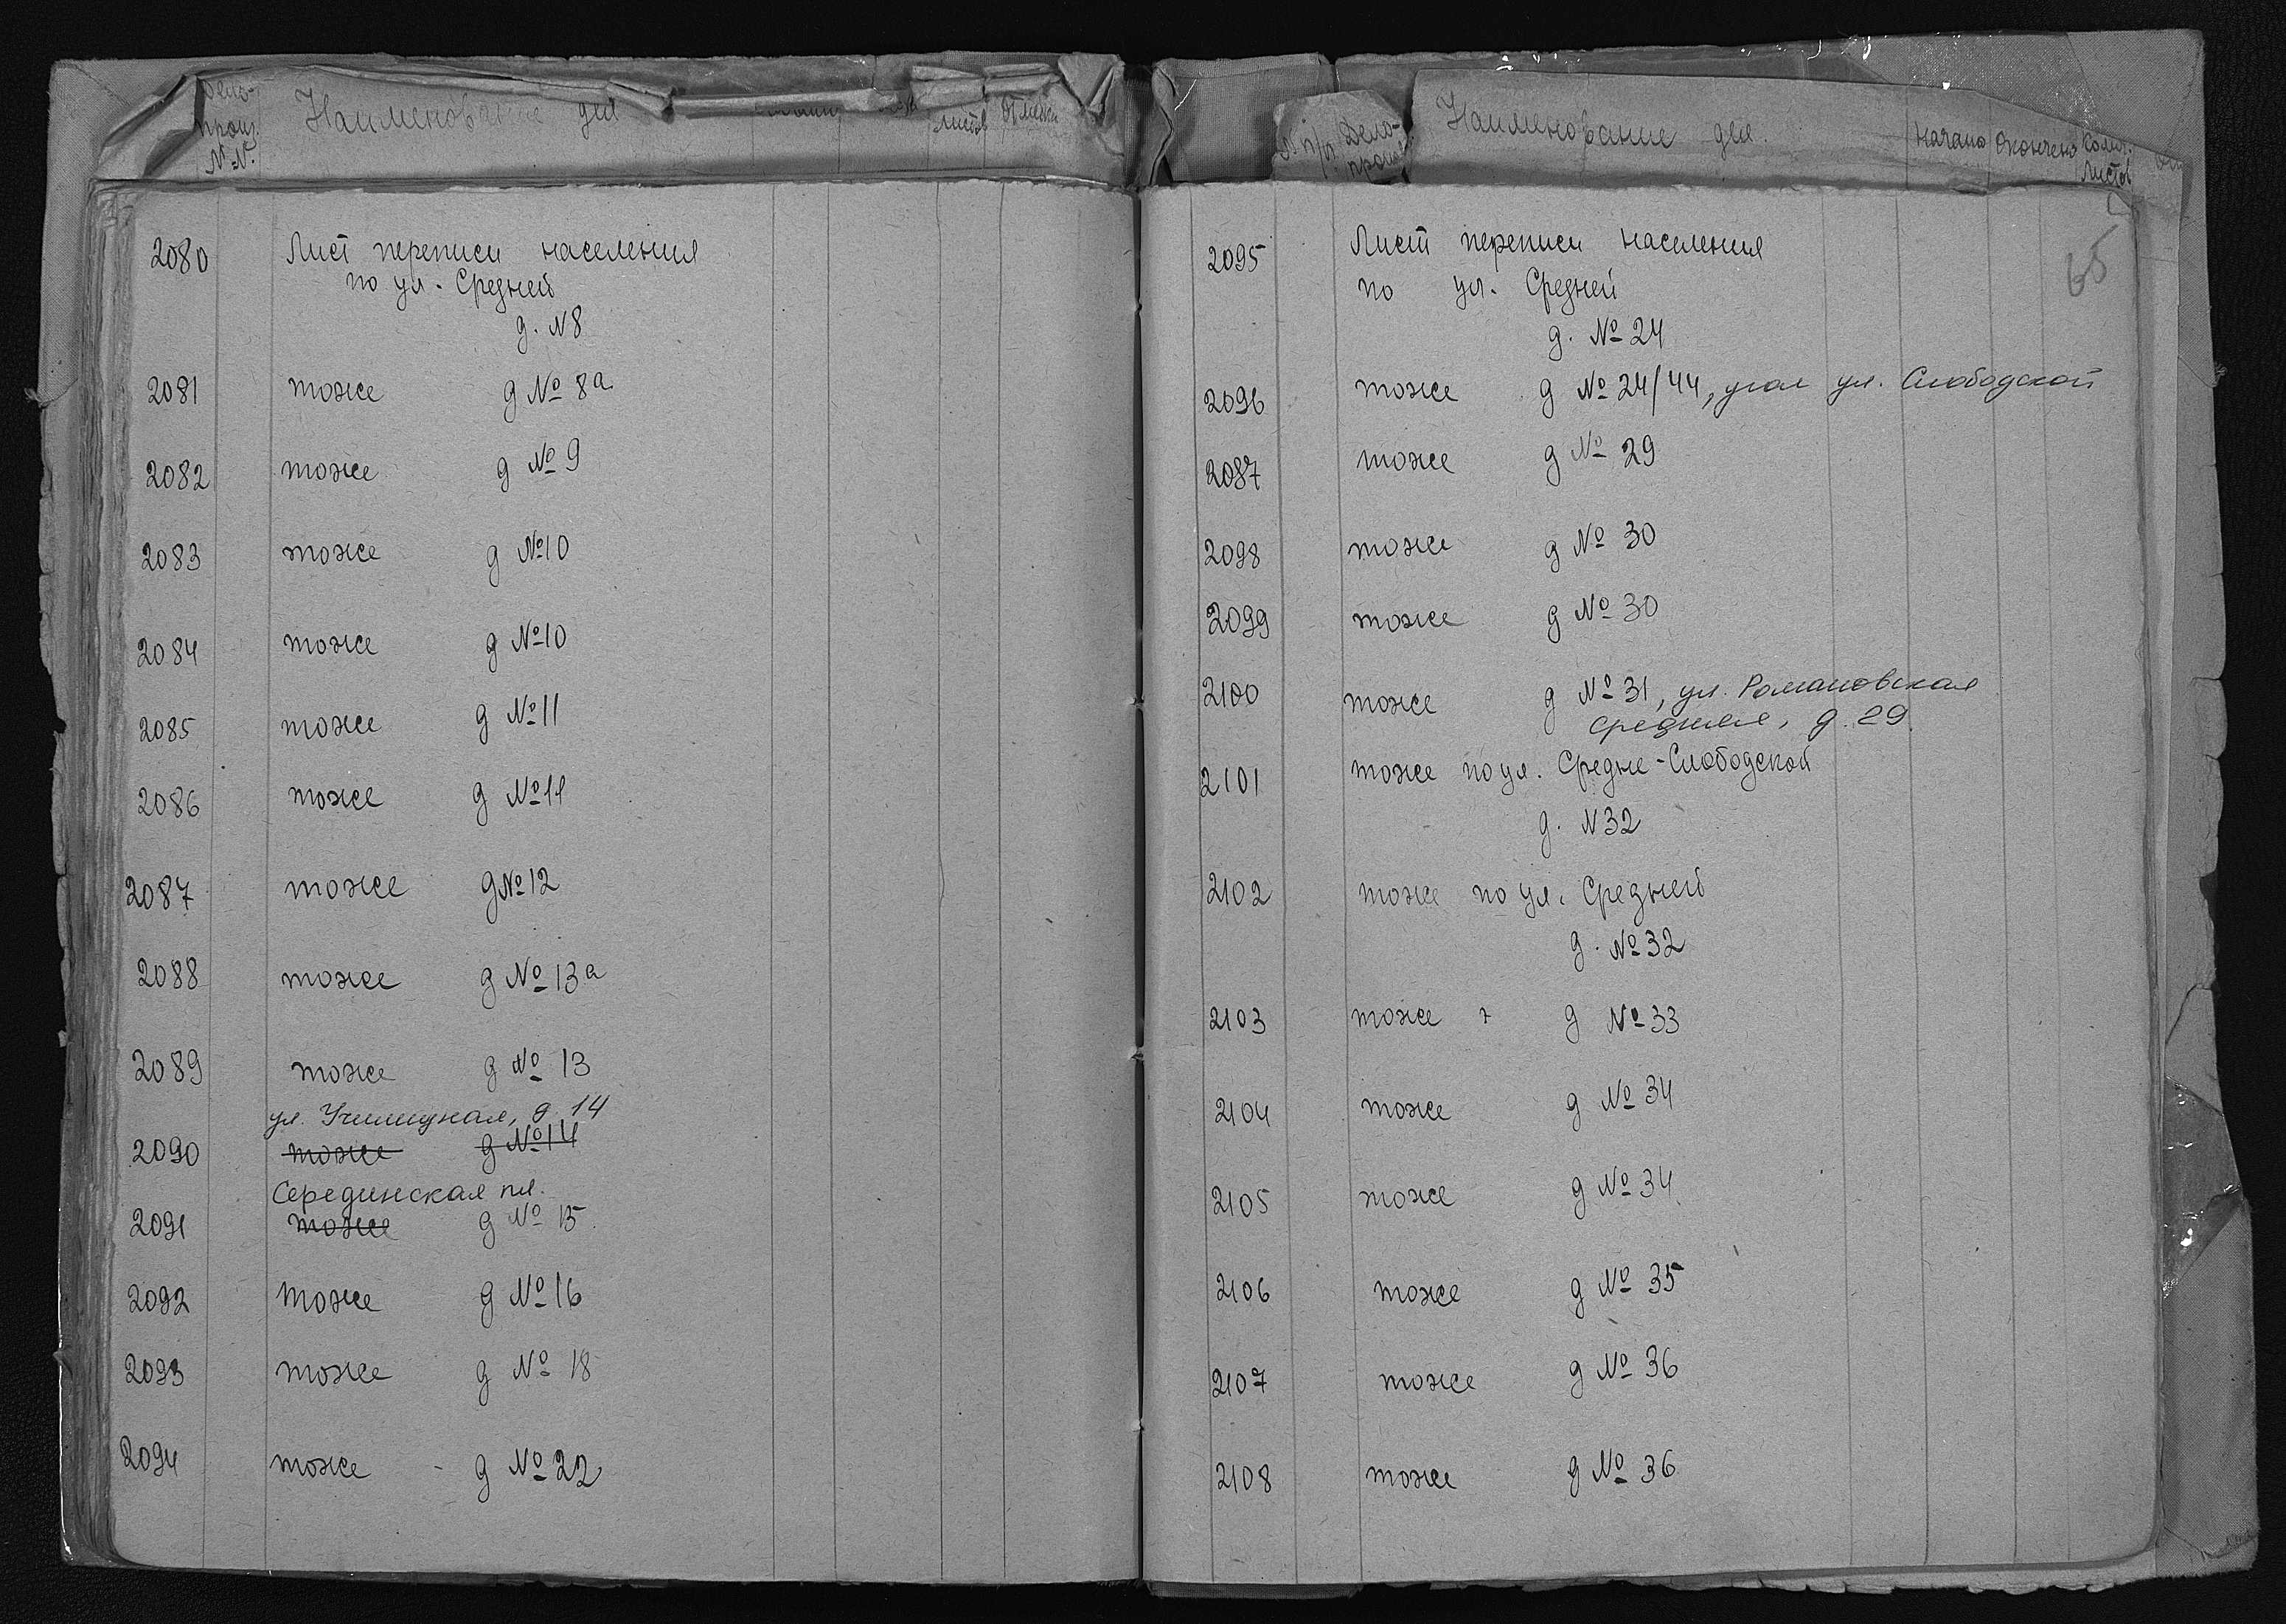 Дело-
произ. Наименование дел листов
№№.
2080 Лист переписи населения
по ул. Средней
д. N8
2081 тоже д № 8а
2082 тоже д № 9
2083 тоже д №10
2084 тоже д №10
2085 тоже д №11
2086 тоже д №11
2087 тоже д№12
2088 тоже д № 13а
2089 тоже д № 13
ул. Училищная, д. 14
2090 тоже д №14
Серединская пл.
2091 тоже д № 15
2092 тоже д № 16
2093 тоже д № 18
2094 тоже д № 22
№ п/п Дело- Наименование дел. Начато Окончено Колич.
произ. листов
65
2095 Лист переписи населения
по ул. Средней
д. № 24
2096 тоже д № 24/44, угол ул. Слободской
2087 тоже д № 29
2098 тоже д № 30
2099 тоже д № 30
2100 тоже д № 31, ул. Романовская
Средняя, д. 29.
2101 тоже по ул. Средне-Слободской
д. N32
2102 тоже по ул. Средней
д. № 32
2103 тоже д № 33
2104 тоже д № 34
2105 тоже д № 34
2106 тоже д № 35
2107 тоже д № 36
2108 тоже д № 36